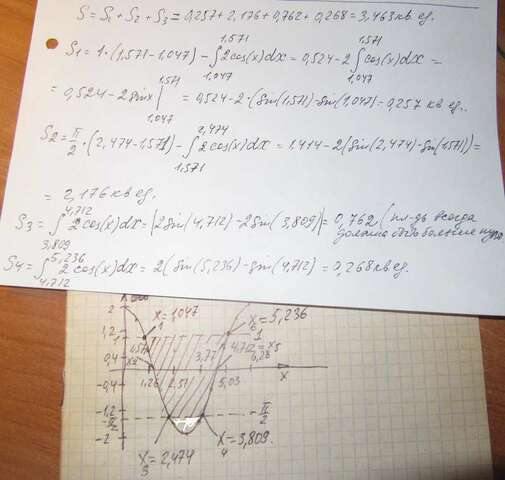 S = S₁ + S₂ + S₃ = 0,257 + 2,176 + 0,762 + 0,268 = 3,463 кв ед.
S₁ = 1·(1,571 - 1,047) - ∫₁,₀₄₇^1,571 2cos(x)dx = 0,524 - 2∫₁,₀₄₇^1,571 cos(x)dx =
= 0,524 - 2sinx |₁,₀₄₇^1,571 = 0,524 - 2·(sin(1,571) - sin(1,047) - 0,257 кв ед.
S₂ = π/2·(2,474 - 1,571) - ∫₁,₅₇₁^2,474 2cos(x)dx = 1,414 - 2(sin(2,474) - sin(1,571)) =
= 2,176 кв ед.
S₃ = ∫₃,₈₀₉^4,712 2cos(x)dx = |2sin(4,712) - 2sin(3,809)| = 0,762 (пл-дь всегда
должна быть больше нуля
S₄ = ∫₄,₇₁₂^5,236 2cos(x)dx = 2(sin(5,236) - sin(4,712) = 0,268 кв ед.
2
x₁ = 1,047
x₆ = 5,236
1
1
1,571
x₂
4,712 = x₅
0,4
1,26
2,51
3,77
5,03
6,28
x
-0,4
-1,2
-π/2
-π/2
-2
x₃ = 2,474
x₄ = 3,809